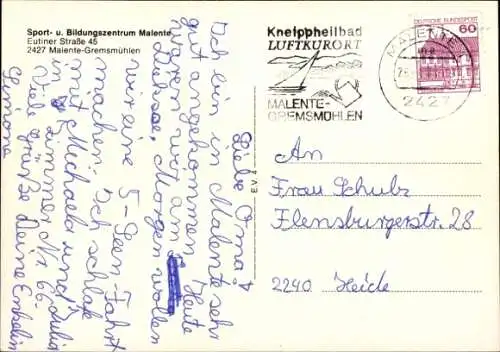 Sport- u. Bildungszentrum Malente
Eutiner Straße 45
2427 Malente-Gremsmühlen
Kneippheilbad
LUFTKURORT
MALENTE-
GREMSMÜHLEN
MALENTE
2427
DEUTSCHE BUNDESPOST
60
Liebe Oma!
Ich bin in Malente sehr
gut angekommen. Heute
waren wir am
Dieksee. Morgen wollen
wir eine 5-Seen-Fahrt
machen. Ich schlafe
mit Michaela und Julia
in Zimmer Nr. 66.
Viele Grüße Deine Enkelin
Simone
An
Frau Schulz
Flensburgerstr. 28
2240 Heide